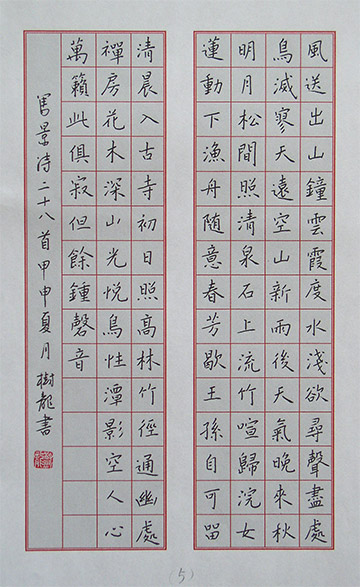 風送出山鐘雲霞度水淺欲尋聲盡處
鳥滅寥天遠空山新雨後天氣晚來秋
明月松間照清泉石上流竹喧歸浣女
蓮動下漁舟随意春芳歇王孫自可留
清晨入古寺初日照高林竹徑通幽處
禪房花木深山光悅鳥性潭影空人心
萬籟此俱寂但餘鍾磬音
寫景詩二十八首甲申夏月樹龍書
(5)